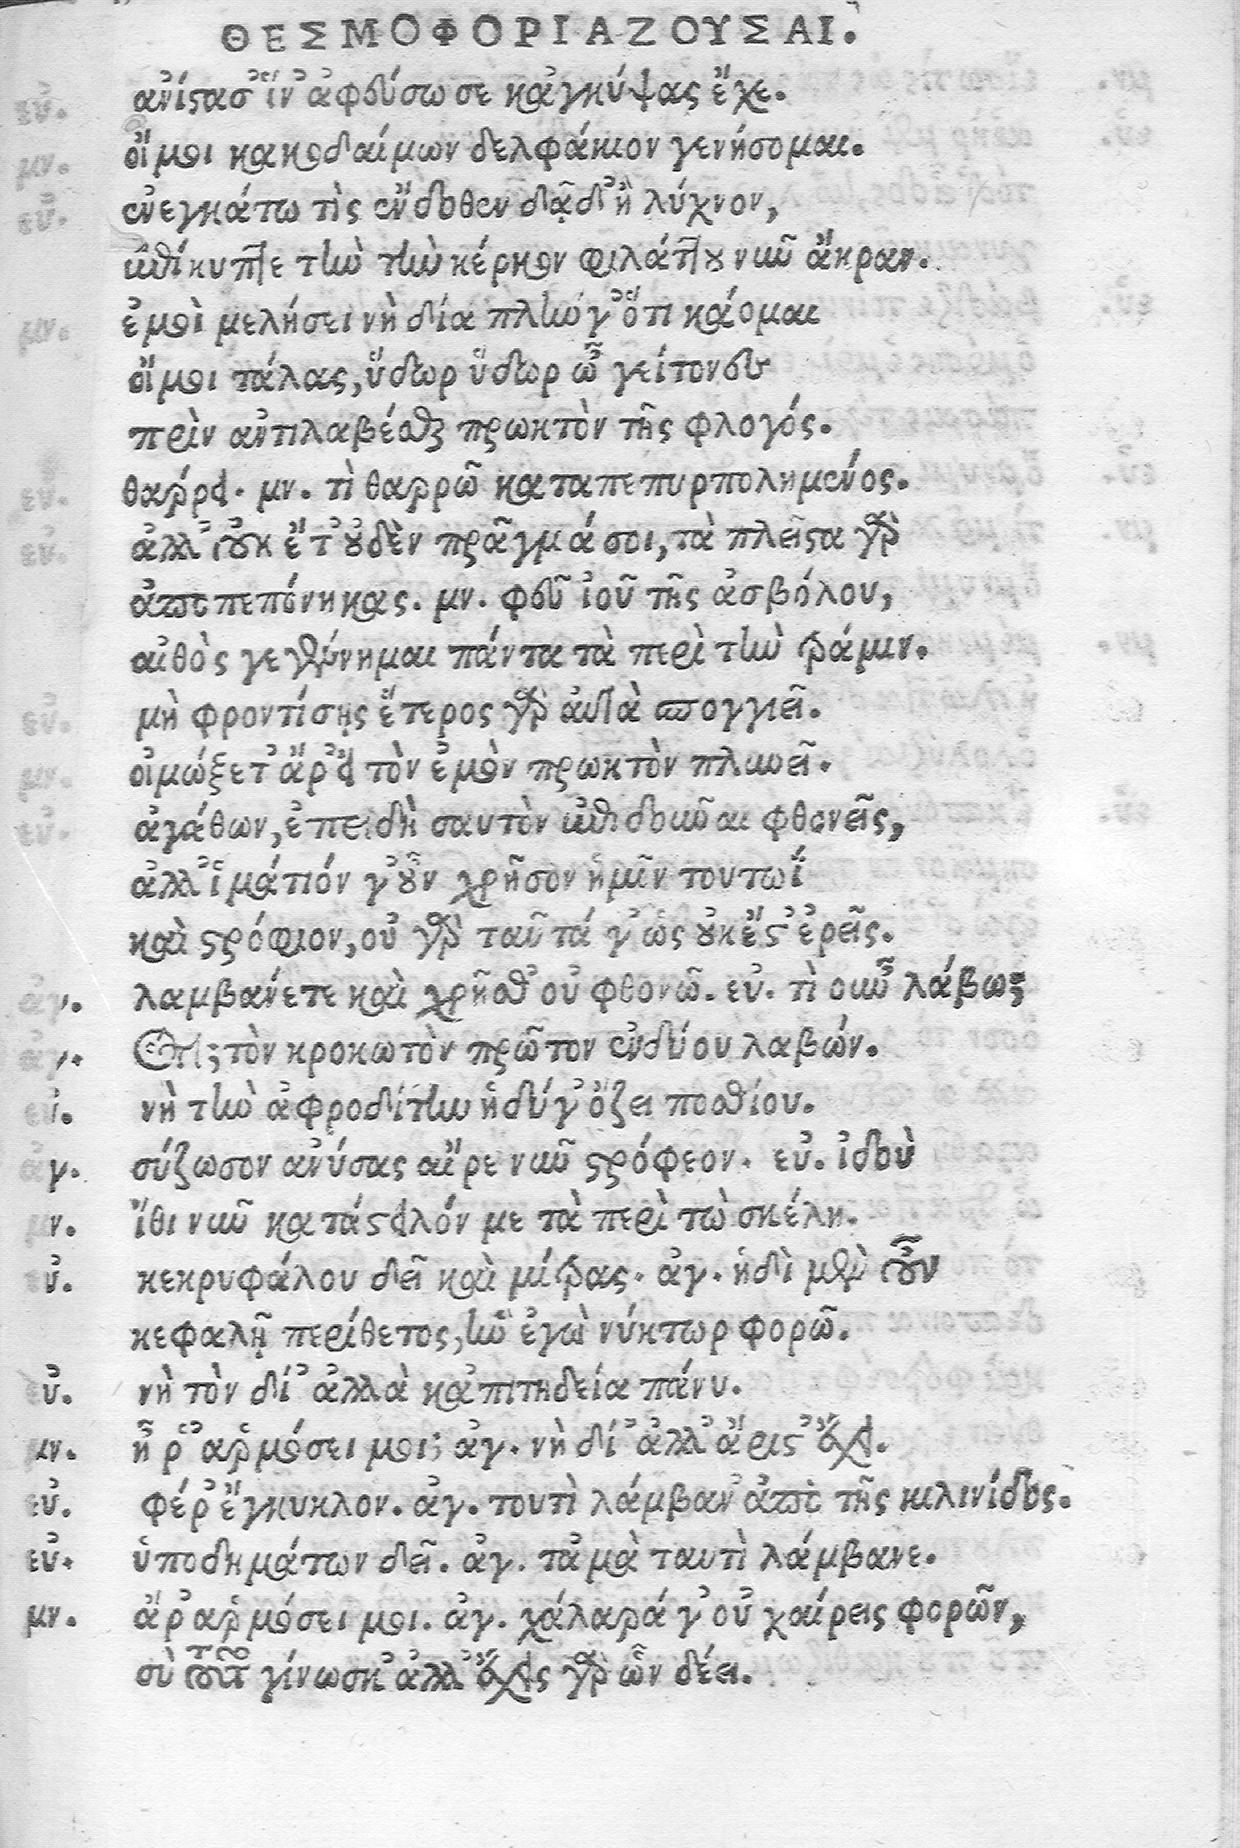 ΘΕΣΜΟΦΟΡΙΑΖΟΥΣΑΙ.
εὐ. ἀνίστασ' ἵν' ἀφεύσω σε κἀγκύψας ἔχε.
μν. οἴμοι κακοδαίμων δελφάκιον γενήσομαι.
εὐ. ἐνεγκάτω τὶς ἔνδοθεν δᾷδ' ἢ λύχνον,
ἐπίκυπτε τὴν τὴν κέρκον φυλάττου νῦν ἄκραν.
μν. ἐμοὶ μελήσει νὴ δία πλὴν γ' ὅτι κάομαι
οἴμοι τάλας, ὕδωρ ὕδωρ ὦ γείτονες
πρὶν ἀντιλαβέσθαι πρωκτὸν τῆς φλογός.
εὐ. θάρρει. μν. τὶ θαρρῶ καταπεπυρπολημένος.
εὐ. ἀλλ' οὐκ ἔτ' οὐδὲν πρᾶγμά σοι, τὰ πλεῖστα γὰρ
ἀποπεπόνηκας. μν. φεῦ ἰοῦ τῆς ἀσβόλου,
αἰθὸς γεγένημαι πάντα τὰ περὶ τὴν τράμιν.
εὐ. μὴ φροντίσῃς ἕτερος γὰρ αὐτὰ σπογγιεῖ.
μν. οἰμώξετ' ἄρ' εἰ τὸν ἐμὸν πρωκτὸν πλυνεῖ.
εὐ. ἀγάθων, ἐπειδὴ σαυτὸν ἐπιδοῦναι φθονεῖς,
ἀλλ' ἱμάτιόν γ' οὖν χρῆσον ἡμῖν τουτωῒ
καὶ στρόφιον, οὐ γὰρ ταῦτά γ' ὡς οὐκ ἔστ' ἐρεῖς.
ἀγ. λαμβάνετε καὶ χρῆσθ' οὐ φθονῶ. εὐ. τὶ οὖν λάβω;
ἀγ. ὅτι; τὸν κροκωτὸν πρῶτον ἐνδύου λαβών.
εὐ. νὴ τὴν ἀφροδίτην ἡδύ γ' ὄζει ποσθίου.
ἀγ. σύζωσον ἀνύσας αἶρε νῦν στρόφεον. εὐ. ἰδοὺ
μν. ἴθι νῦν κατάστειλόν με τὰ περὶ τὼ σκέλη.
εὐ. κεκρυφάλου δεῖ καὶ μίτρας. ἀγ. ἡδὶ μὲν οὖν
κεφαλὴ περίθετος, ἣν ἐγὼ νύκτωρ φορῶ.
εὐ. νὴ τὸν δί' ἀλλὰ κἀπιτηδεία πάνυ.
μν. ἦ ῥ' ἁρμόσει μοι; ἀγ. νὴ δί' ἀλλ' ἄριστ' ἔχει.
εὐ. φέρ' ἔγκυκλον. ἀγ. τουτὶ λάμβαν' ἀπὸ τῆς κλινίδος.
εὐ. ὑποδημάτων δεῖ. ἀγ. τἀμὰ ταυτὶ λάμβανε.
μν. ἆρ' ἁρμόσει μοι. ἀγ. χάλαρά γ' οὐ χαίρεις φορῶν,
σὺ τοῦτο γίνωσκ' ἀλλ' ἔχεις γὰρ ὧν δέει.